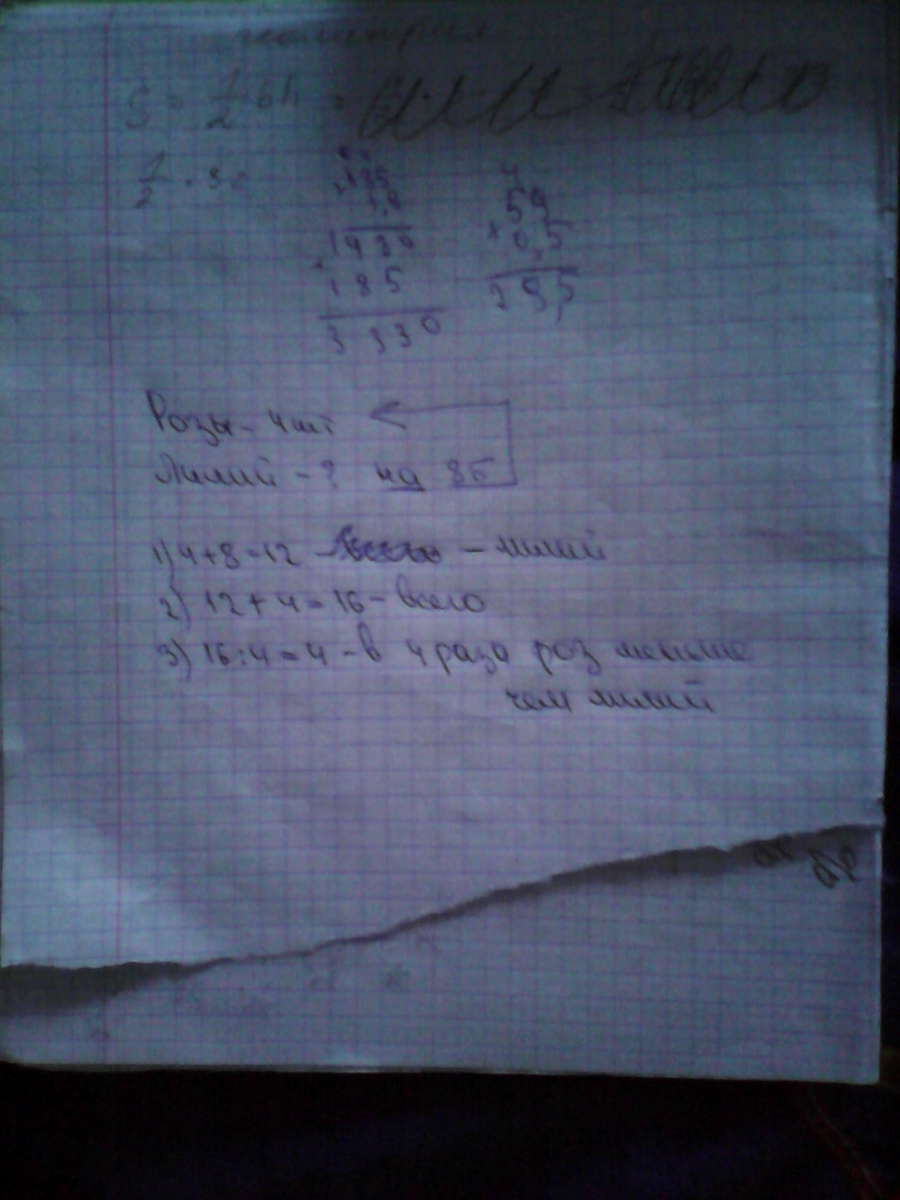 S = 1/2 bh =
1/2 · 3
185
59
0,5
295
185
3330
Розы - 4 шт
Лилий - ? на 8Б
1) 4+8=12 - лилий
2) 12+4=16 - всего
3) 16:4=4 - в 4 раза роз меньше
чем лилий